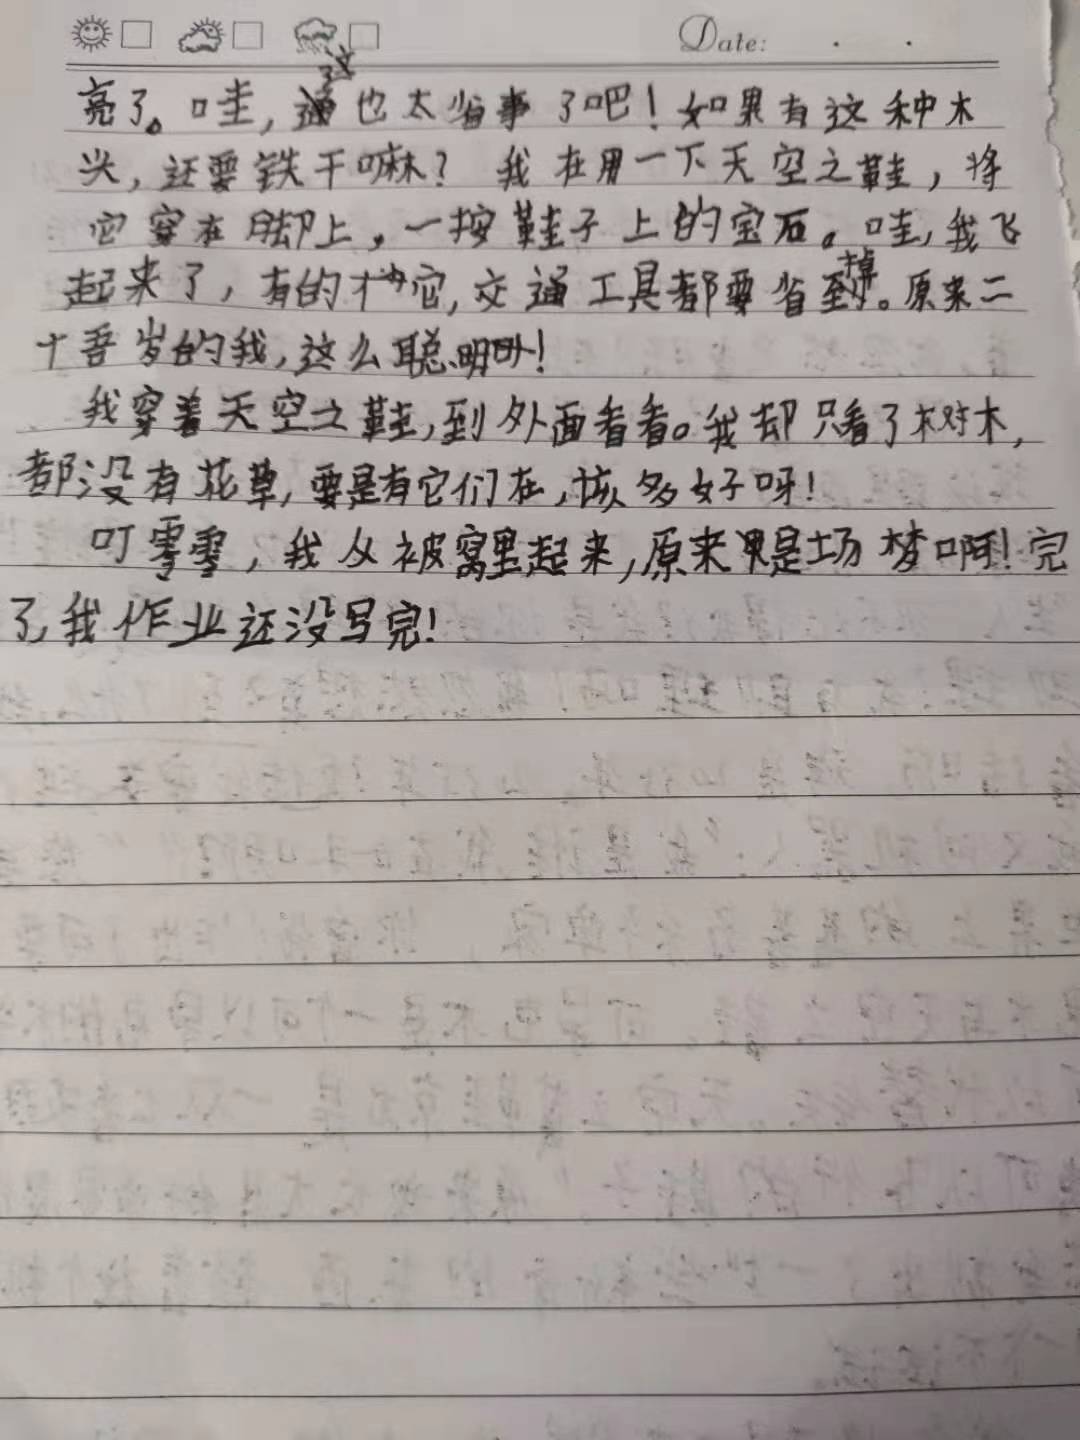 Date:
亮了。哇，这也太省事了吧！如果有这种木
头，还要铁干嘛？我在用一下天空之鞋，将
它穿在脚上，一按鞋子上的宝石。哇，我飞
起来了，有的它，交通工具都要省掉。原来二
十吾岁的我，这么聪明！
我穿着天空之鞋，到外面看看。我却只看了树木，
都没有花草，要是有它们在，该多好呀！
叮零零，我从被窝里起来，原来是场梦啊！完
了，我作业还没写完！